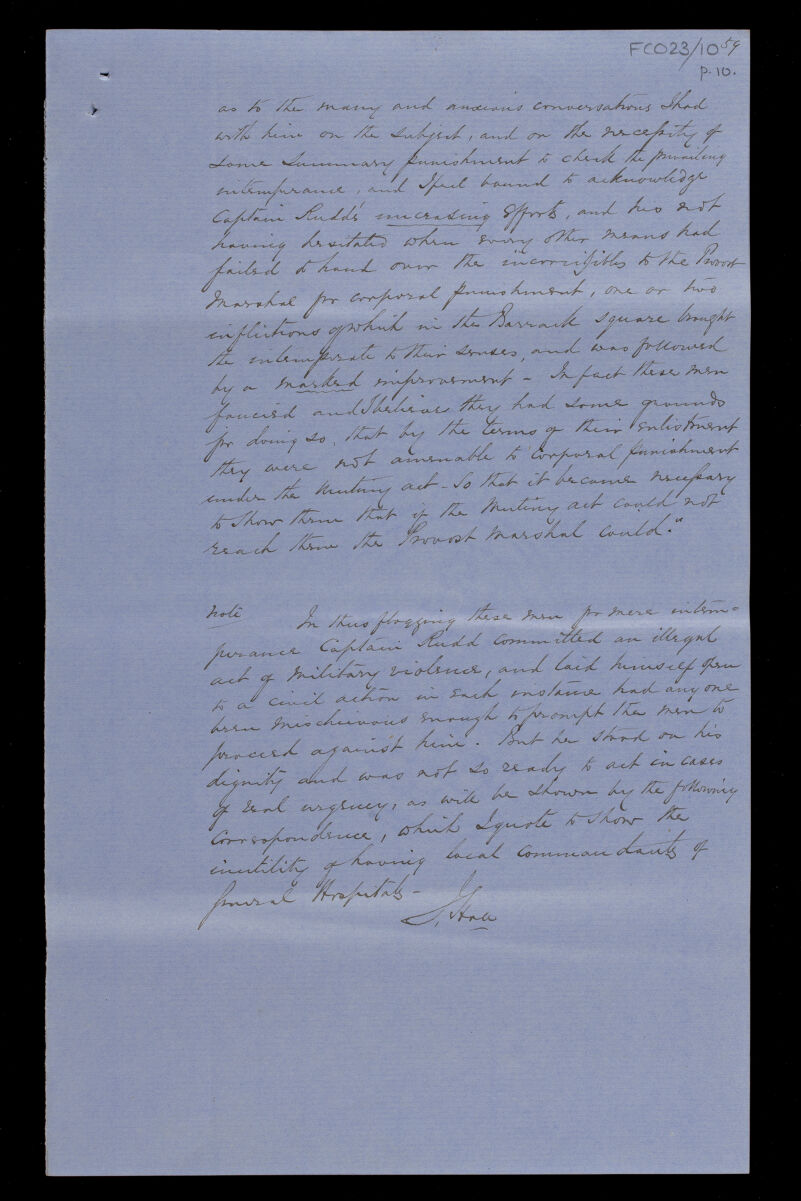 FCO23/10 59
p.10.
as to the many and anxious conversations I had
with him on the subject, and on the necessity of
some summary punishment to check the prevailing
intemperance, and I feel bound to acknowledge
Captain Rudd's unceasing efforts, and his not
having hesitated when every other means had
failed to hand over the incorrigibles to the Provost
Marshal for corporal punishment, one or two
inflictions of which in the Barrack Square brought
the intemperate to their senses, and was followed
by a marked improvement – In fact these men
fancied and I believe they had some grounds
for doing so, that by the terms of their enlistment
they were not amenable to corporal punishment
under the Mutiny act – So that it became necessary
to show them that if the Mutiny act could not
reach them the Provost Marshal could."
Note In thus flogging these men for mere intem=
perance Captain Rudd committed an illegal
act of Military violence, and laid himself open
to a civil action in each instance had any one
been mischievous enough to prompt the men to
proceed against him. But he stood on his
dignity and was not so ready to act in cases
of real urgency, as will be shown by the following
Correspondence, which I quote to show the
inutility of having local commandants of
General Hospitals –
J. Hall